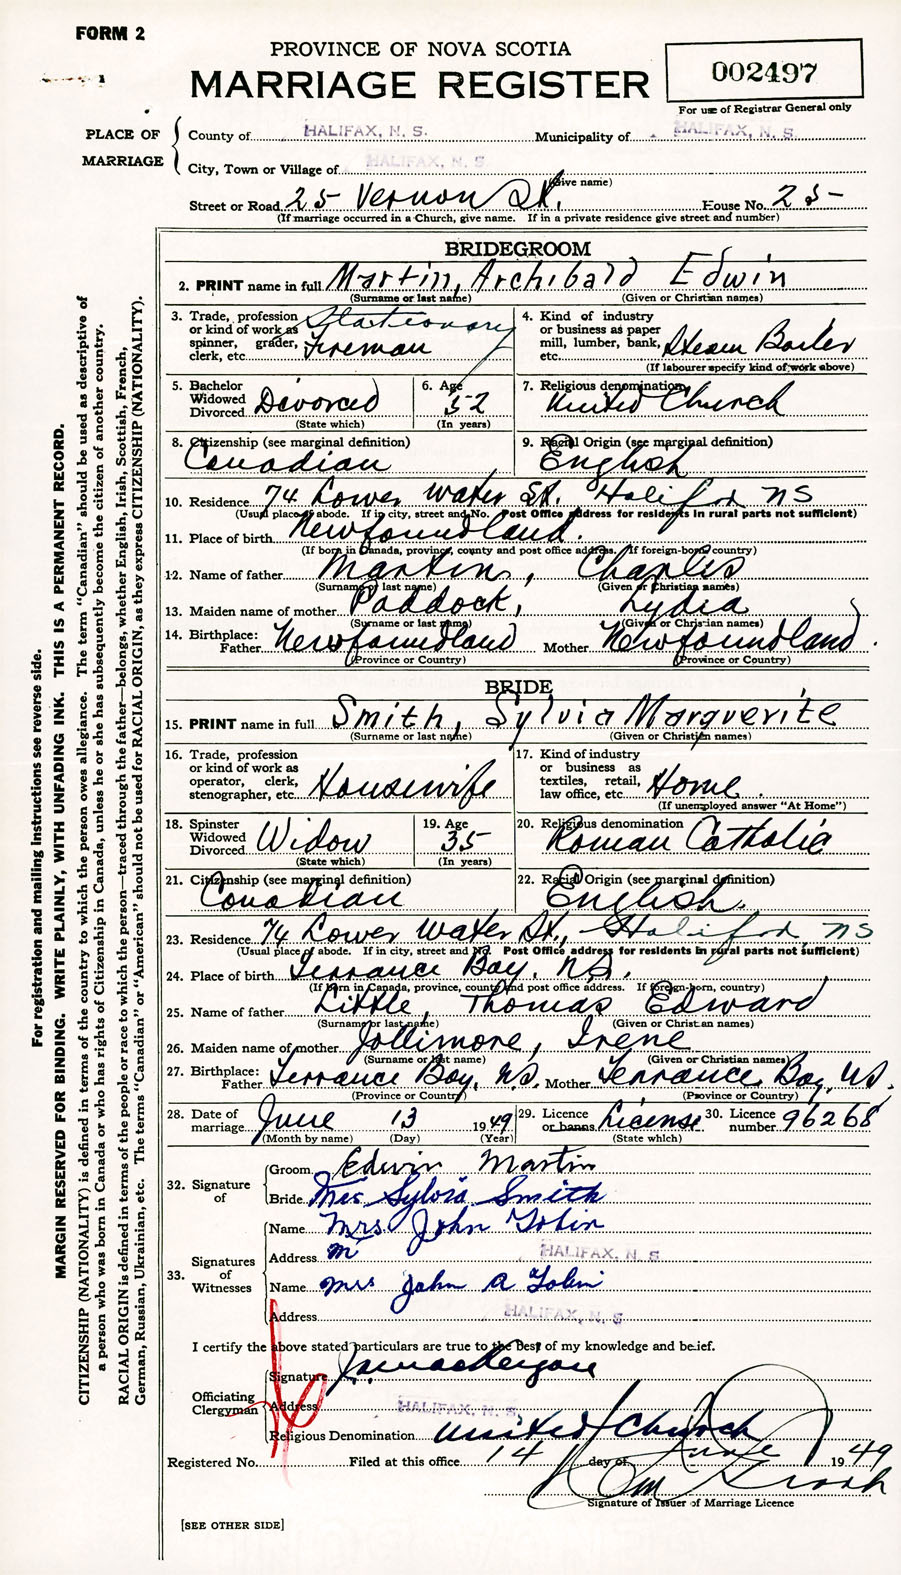 FORM 2
PROVINCE OF NOVA SCOTIA
MARRIAGE REGISTER
002497
For use of Registrar General only
PLACE OF MARRIAGE
County of HALIFAX, N. S. Municipality of HALIFAX, N. S.
City, Town or Village of HALIFAX, N. S.
(Give name)
Street or Road 25 Vernon St. House No. 25
(If marriage occurred in a Church, give name. If in a private residence give street and number)
BRIDEGROOM
2. PRINT name in full Martin, Archibald Edwin
(Surname or last name) (Given or Christian names)
3. Trade, profession or kind of work as spinner, grader, clerk, etc. Stationary Fireman
4. Kind of industry or business as paper mill, lumber, bank, etc. Steam Boiler
(If labourer specify kind of work above)
5. Bachelor Widowed Divorced Divorced
(State which)
6. Age 52
(In years)
7. Religious denomination United Church
8. Citizenship (see marginal definition) Canadian
9. Racial Origin (see marginal definition) English
10. Residence 74 Lower Water St. Halifax NS
(Usual place of abode. If in city, street and No. Post Office address for residents in rural parts not sufficient)
11. Place of birth Newfoundland.
(If born in Canada, province, county and post office address. If foreign-born, country)
12. Name of father Martin, Charles
(Surname or last name) (Given or Christian names)
13. Maiden name of mother Paddock, Lydia
(Surname or last name) (Given or Christian names)
14. Birthplace: Father Newfoundland Mother Newfoundland.
(Province or Country) (Province or Country)
BRIDE
15. PRINT name in full Smith, Sylvia Marguerite
(Surname or last name) (Given or Christian names)
16. Trade, profession or kind of work as operator, clerk, stenographer, etc. Housewife
17. Kind of industry or business as textiles, retail, law office, etc. Home.
(If unemployed answer "At Home")
18. Spinster Widowed Divorced Widow
(State which)
19. Age 35
(In years)
20. Religious denomination Roman Catholic
21. Citizenship (see marginal definition) Canadian
22. Racial Origin (see marginal definition) English.
23. Residence 74 Lower Water St., Halifax NS
(Usual place of abode. If in city, street and No. Post Office address for residents in rural parts not sufficient)
24. Place of birth Terrance Bay, NS.
(If born in Canada, province, county and post office address. If foreign-born, country)
25. Name of father Little, Thomas Edward
(Surname or last name) (Given or Christian names)
26. Maiden name of mother Jollimore, Irene
(Surname or last name) (Given or Christian names)
27. Birthplace: Father Terrance Bay, NS. Mother Terrance Bay, NS.
(Province or Country) (Province or Country)
28. Date of marriage June 13 1949
(Month by name) (Day) (Year)
29. Licence or banns License
(State which)
30. Licence number 96268
32. Signature of
Groom Edwin Martin
Bride Mrs Sylvia Smith
33. Signatures of Witnesses
Name Mrs. John Tobin
Address M HALIFAX, N. S.
Name Mrs John A Tobin
Address HALIFAX, N. S.
I certify the above stated particulars are true to the best of my knowledge and belief.
Officiating Clergyman
Signature
Address HALIFAX, N. S.
Religious Denomination United Church
Registered No. Filed at this office 14 day of June 1949
Signature of Issuer of Marriage Licence
[SEE OTHER SIDE]
For registration and mailing instructions see reverse side.
MARGIN RESERVED FOR BINDING. WRITE PLAINLY, WITH UNFADING INK. THIS IS A PERMANENT RECORD.
CITIZENSHIP (NATIONALITY) is defined in terms of the country to which the person owes allegiance. The term "Canadian" should be used as descriptive of
a person who was born in Canada or who has rights of Citizenship in Canada, unless he or she has subsequently become the citizen of another country.
RACIAL ORIGIN is defined in terms of the people or race to which the person—traced through the father—belongs, whether English, Irish, Scottish, French,
German, Russian, Ukrainian, etc. The terms "Canadian" or "American" should not be used for RACIAL ORIGIN, as they express CITIZENSHIP (NATIONALITY).